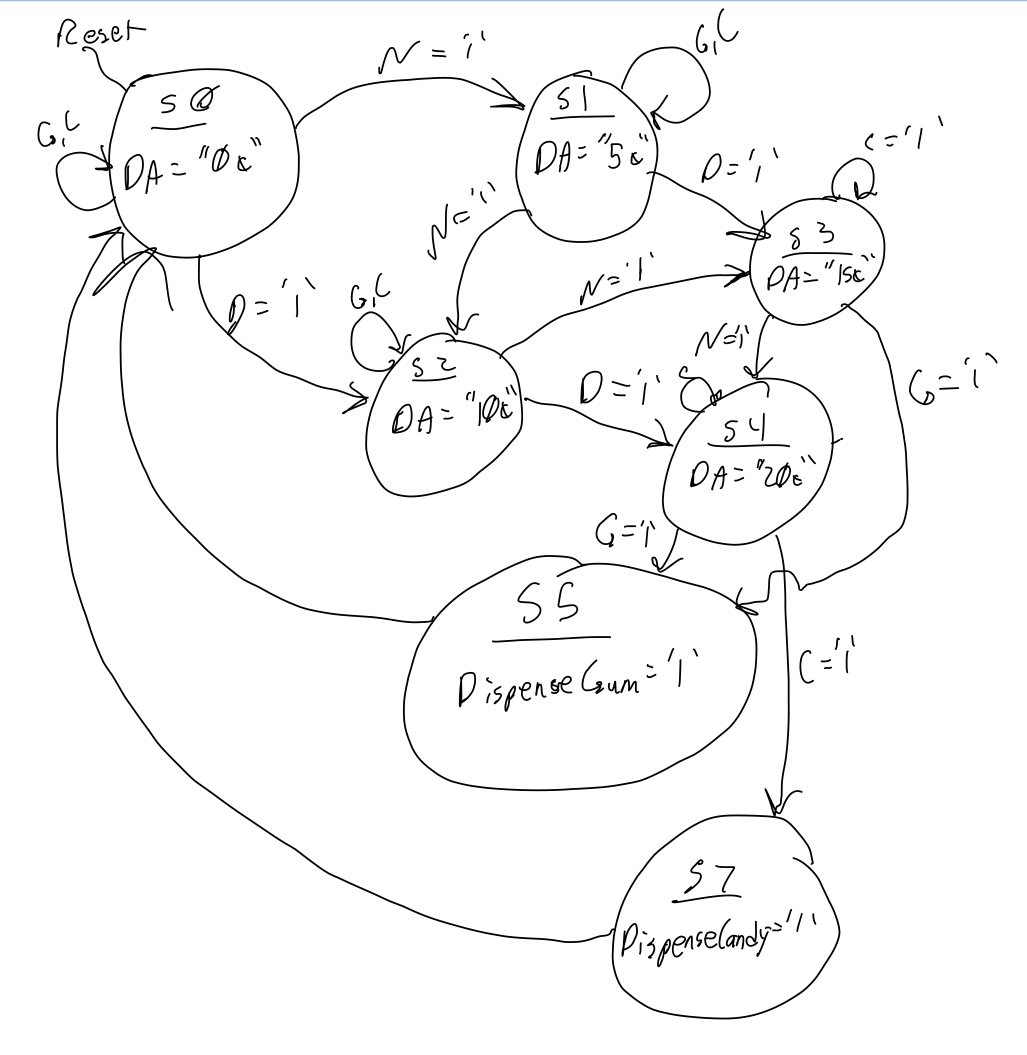 Reset
N = '1'
G,C
S0
DA = "0¢"
G,C
S1
DA = "5¢"
C = '1'
D = '1'
N = '1'
S3
DA = "15¢"
N = '1'
D = '1'
G,C
S2
DA = "10¢"
D = '1'
N = '1'
G = '1'
S4
DA = "20¢"
G = '1'
S5
DispenseGum = '1'
C = '1'
S7
DispenseCandy = '1'